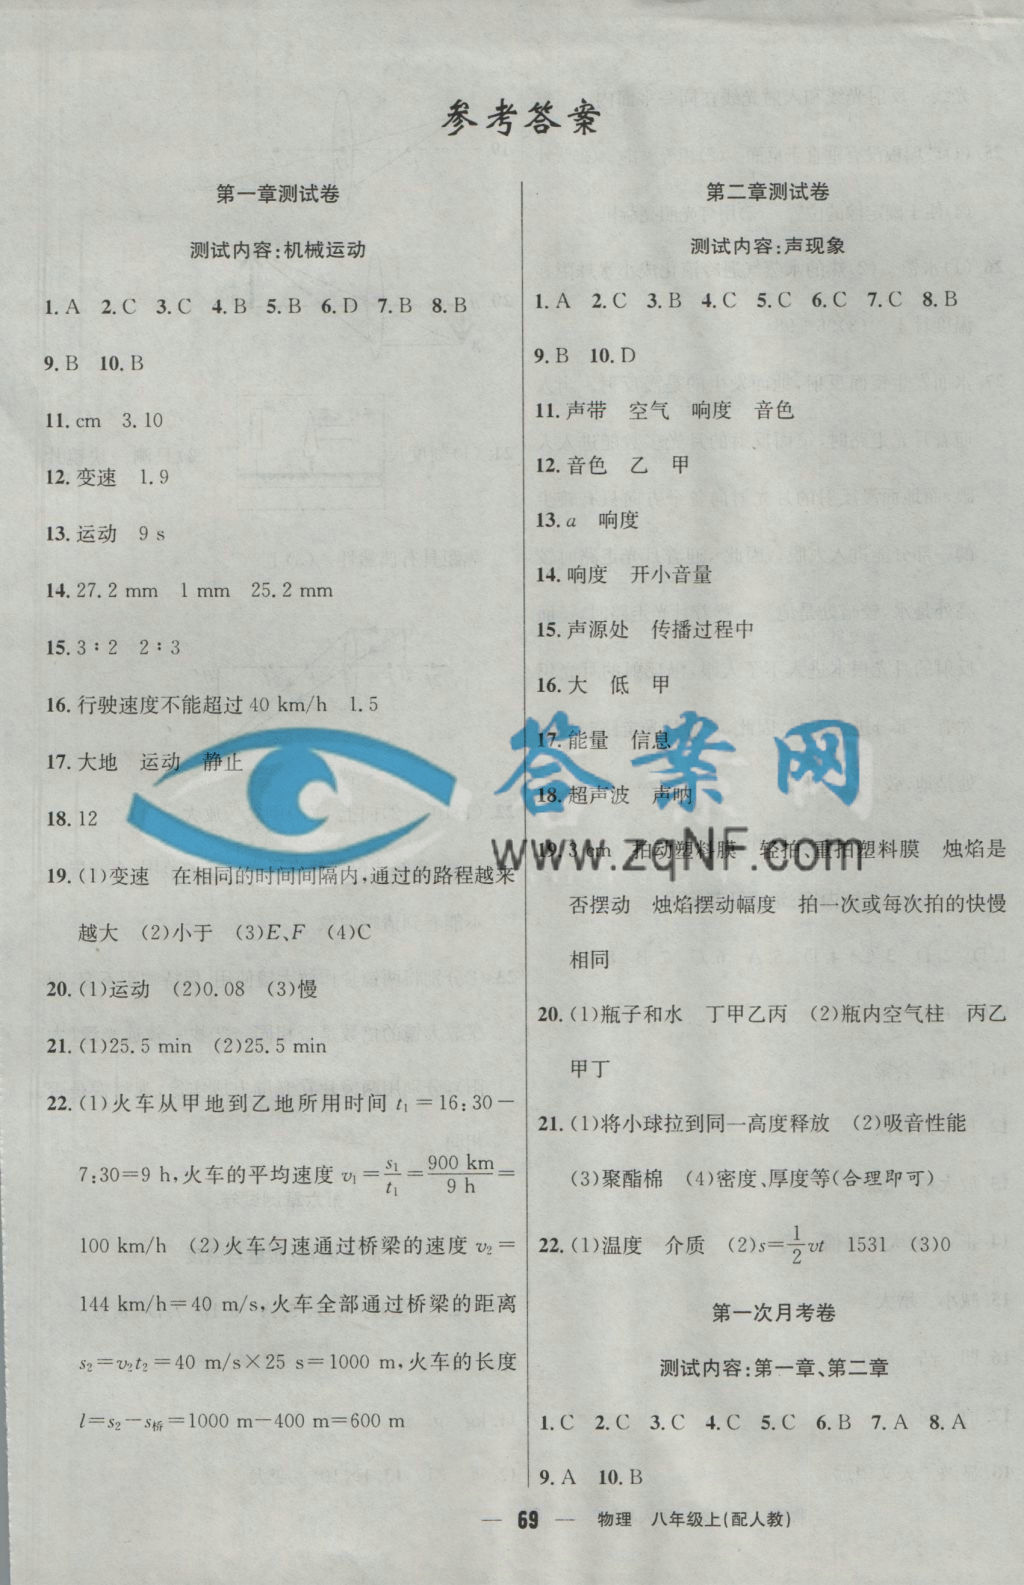 参考答案
第一章测试卷
测试内容:机械运动
1.A 2.C 3.C 4.B 5.B 6.D 7.B 8.B
9.B 10.B
11.cm 3.10
12.变速 1.9
13.运动 9 s
14.27.2 mm 1 mm 25.2 mm
15.3∶2 2∶3
16.行驶速度不能超过40 km/h 1.5
17.大地 运动 静止
18.12
19.(1)变速 在相同的时间间隔内,通过的路程越来
越大 (2)小于 (3)E、F (4)C
20.(1)运动 (2)0.08 (3)慢
21.(1)25.5 min (2)25.5 min
22.(1)火车从甲地到乙地所用时间 t₁=16:30-
7:30=9 h,火车的平均速度 v₁=s₁/t₁=900 km/9 h=
100 km/h (2)火车匀速通过桥梁的速度 v₂=
144 km/h=40 m/s,火车全部通过桥梁的距离
s₂=v₂t₂=40 m/s×25 s=1000 m,火车的长度
l=s₂-s桥=1000 m-400 m=600 m
第二章测试卷
测试内容:声现象
1.A 2.C 3.B 4.C 5.C 6.C 7.C 8.B
9.B 10.D
11.声带 空气 响度 音色
12.音色 乙 甲
13.a 响度
14.响度 开小音量
15.声源处 传播过程中
16.大 低 甲
17.能量 信息
18.超声波 声呐
19.3 cm 拍动塑料膜 轻拍、重拍塑料膜 烛焰是
否摆动 烛焰摆动幅度 拍一次或每次拍的快慢
相同
20.(1)瓶子和水 丁甲乙丙 (2)瓶内空气柱 丙乙
甲丁
21.(1)将小球拉到同一高度释放 (2)吸音性能
(3)聚酯棉 (4)密度、厚度等(合理即可)
22.(1)温度 介质 (2)s=1/2vt 1531 (3)0
第一次月考卷
测试内容:第一章、第二章
1.C 2.C 3.C 4.C 5.C 6.B 7.A 8.A
9.A 10.B
— 69 — 物理 八年级上(配人教)
答案网
www.zqNF.com